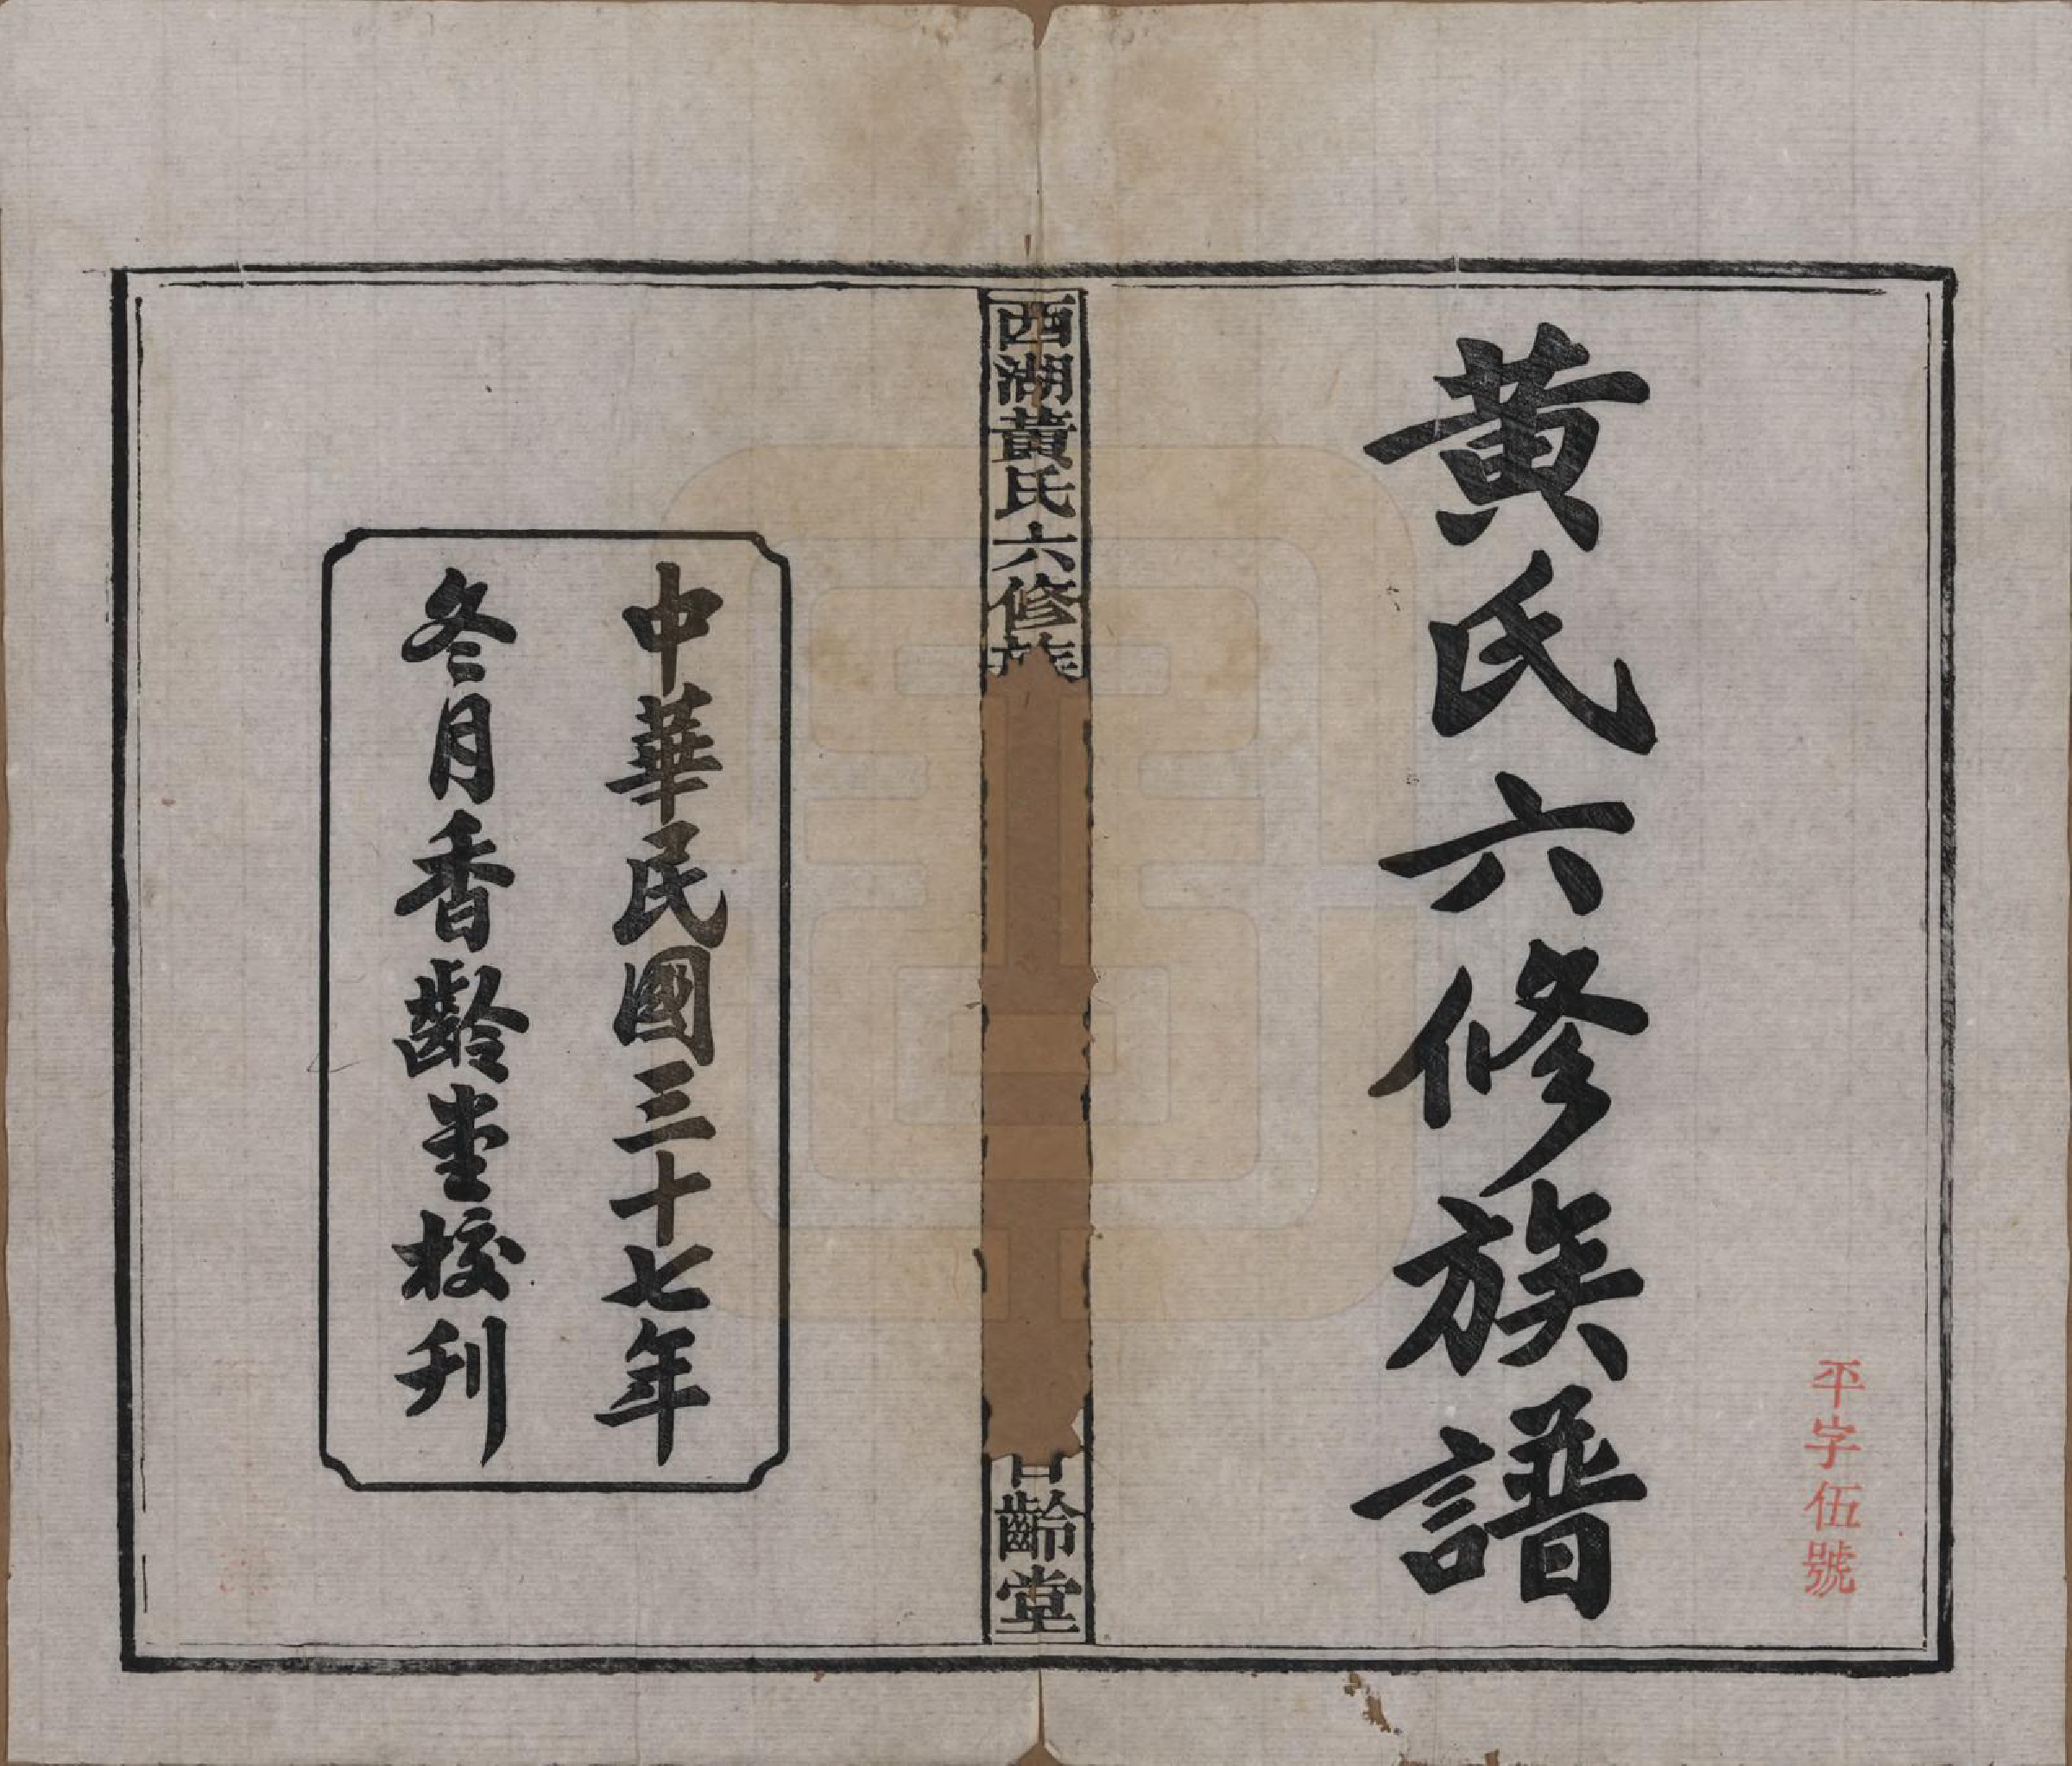 黃氏六修族譜
平字伍號
西湖黃氏六修族
香齡堂
中華民國三十七年
冬月香齡堂校刊